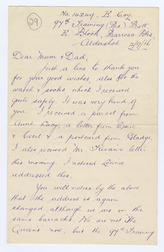 29
B. Coy
97th Training Res. Batt
E. Block, Barossa Bks
Aldershot
Dear Mum & Dad,
Just a line to thank you
for your good wishes, also for the
watch & socks which I received
quite safely. It was very kind of
you. I received a parcel from
a letter from Doris
& a postcard from Gladys.
I also received Mr letter
this morning. I noticed Doris
addressed this.
You will notice by the above
that the address is again
changed although we are in the
same barracks. We are not the
now, but the 97th Training